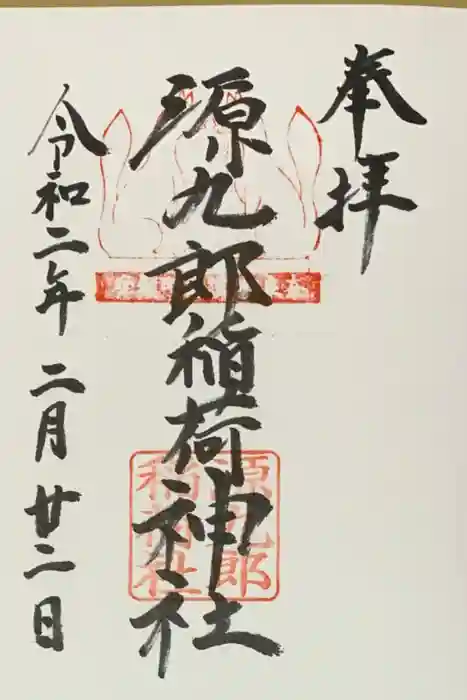 奉拝
源九郎稲荷神社
源九郎
稲荷社
令和二年 二月廿二日